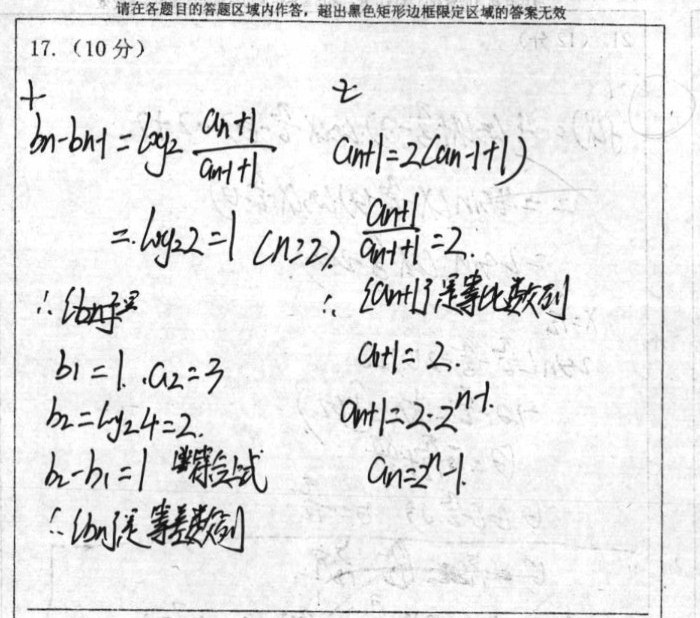 请在各题目的答题区域内作答，超出黑色矩形边框限定区域的答案无效
17.（10分）
bn-bn-1=log2 (an+1)/(an-1+1)
=log22=1 (n≥2)
b1=1. a2=3
b2=log24=2.
b2-b1=1 符合上式
∴{bn}是等差数列
an+1=2(an-1+1)
(an+1)/(an-1+1)=2.
∴{an+1}是等比数列
a1+1=2.
an+1=2·2^n-1.
an=2^n-1.